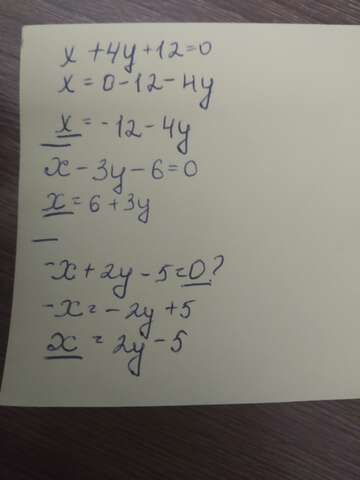 x + 4y + 12 = 0
x = 0 - 12 - 4y
x = -12 - 4y
x - 3y - 6 = 0
x = 6 + 3y
-x + 2y - 5 = 0?
-x = -2y + 5
x = 2y - 5